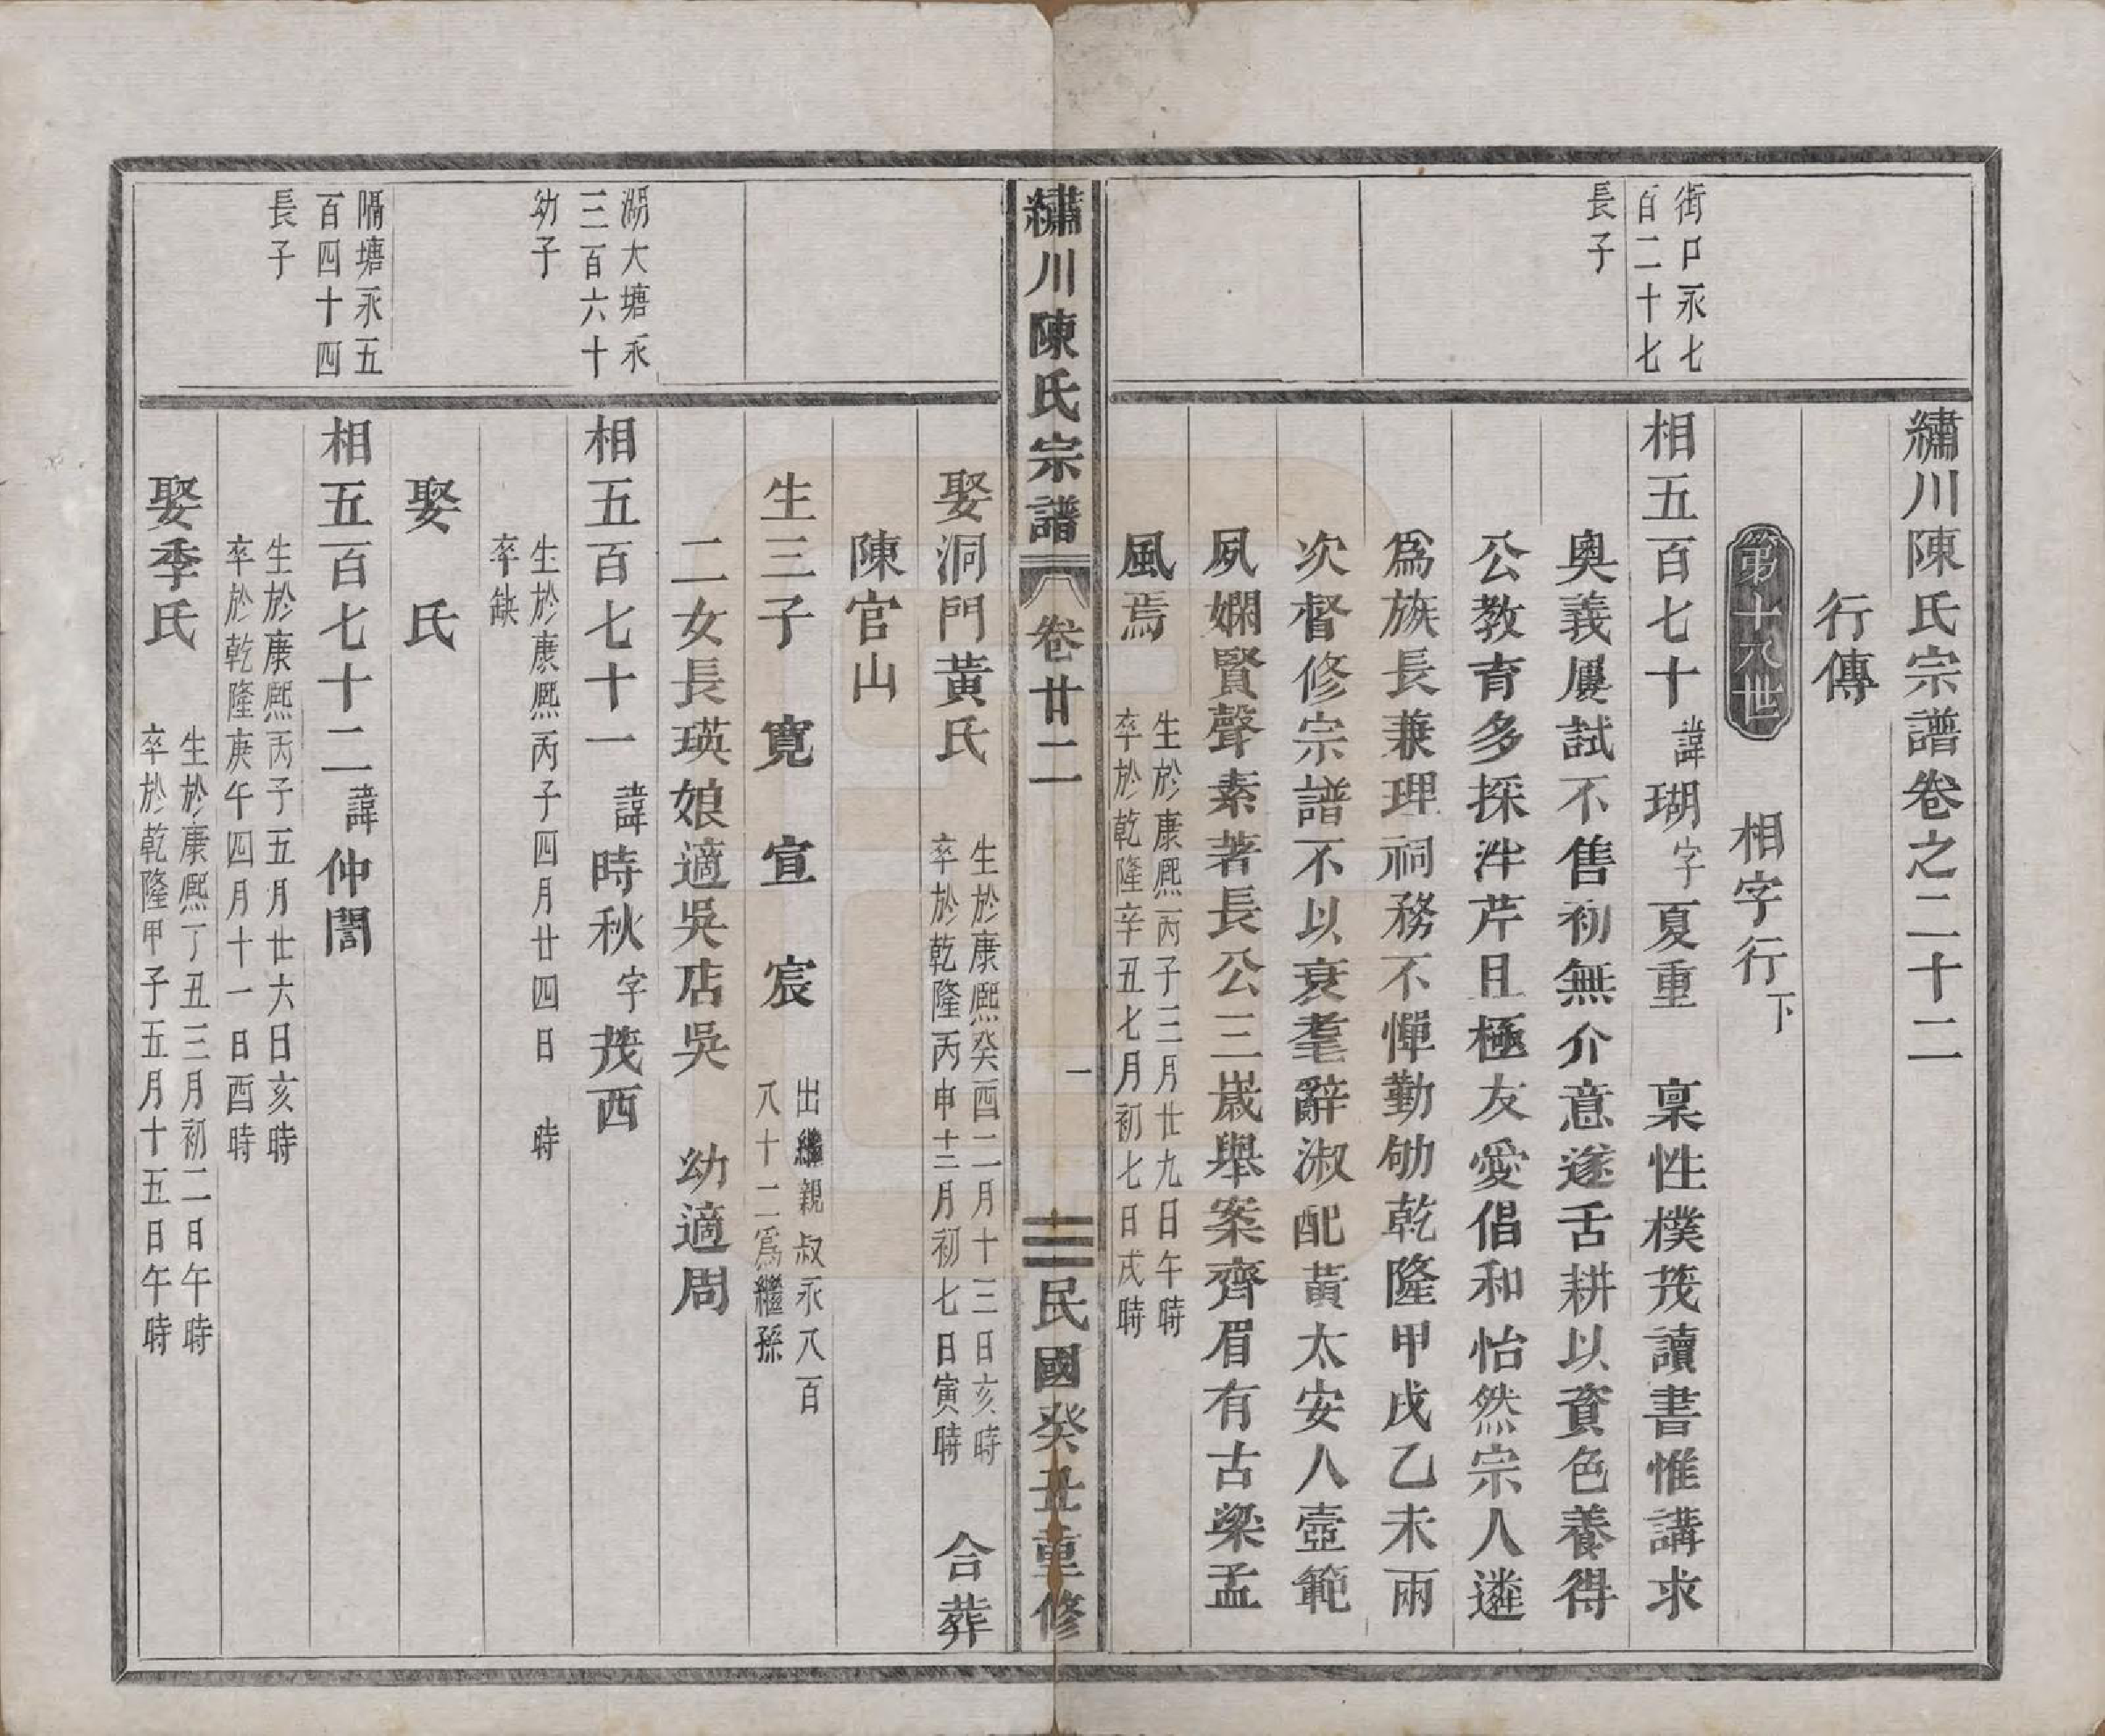 繡川陳氏宗譜卷之二十二
行傳
第十八世
相字行下
街口永七
百二十七
長子
相五百七十諱瑚字夏重 稟性樸茂讀書惟講求
奧義屢試不售初無介意遂舌耕以資色養得
公教育多採泮芹且極友愛倡和怡然宗人遴
爲族長兼理祠務不憚勤劬乾隆甲戌乙未兩
次督修宗譜不以衰耄辭淑配黃太安人壼範
夙嫻賢聲素著長公三歲舉案齊眉有古梁孟
風焉
生於康熙丙子三月廿九日午時
卒於乾隆辛丑七月初七日戌時
繡川陳氏宗譜
卷廿二
一
民國癸丑重修
娶洞門黃氏
生於康熙癸酉二月十三日亥時
卒於乾隆丙申十二月初七日寅時
合葬
陳官山
生三子 寬 宣 宸
出繼親叔永八百
八十二爲繼孫
二女長瑛娘適吳店吳 幼適周
湖大塘永
三百六十
幼子
相五百七十一諱時秋字茂西
生於康熙丙子四月廿四日 時
卒缺
娶 氏
隔塘永五
百四十四
長子
相五百七十二諱仲誾
生於康熙丙子五月廿六日亥時
卒於乾隆庚午四月十一日酉時
娶季氏
生於康熙丁丑三月初二日午時
卒於乾隆甲子五月十五日午時